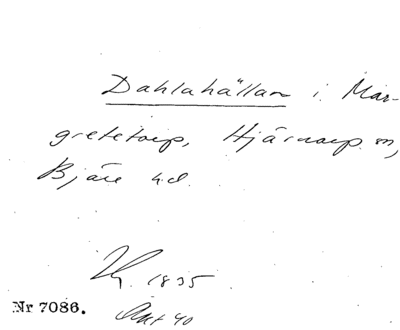 Dahlahällan i Mar-
gretetorp, Hjärnarp sn,
Bjäre hd.
1835
Nr 7086.
Akt 40